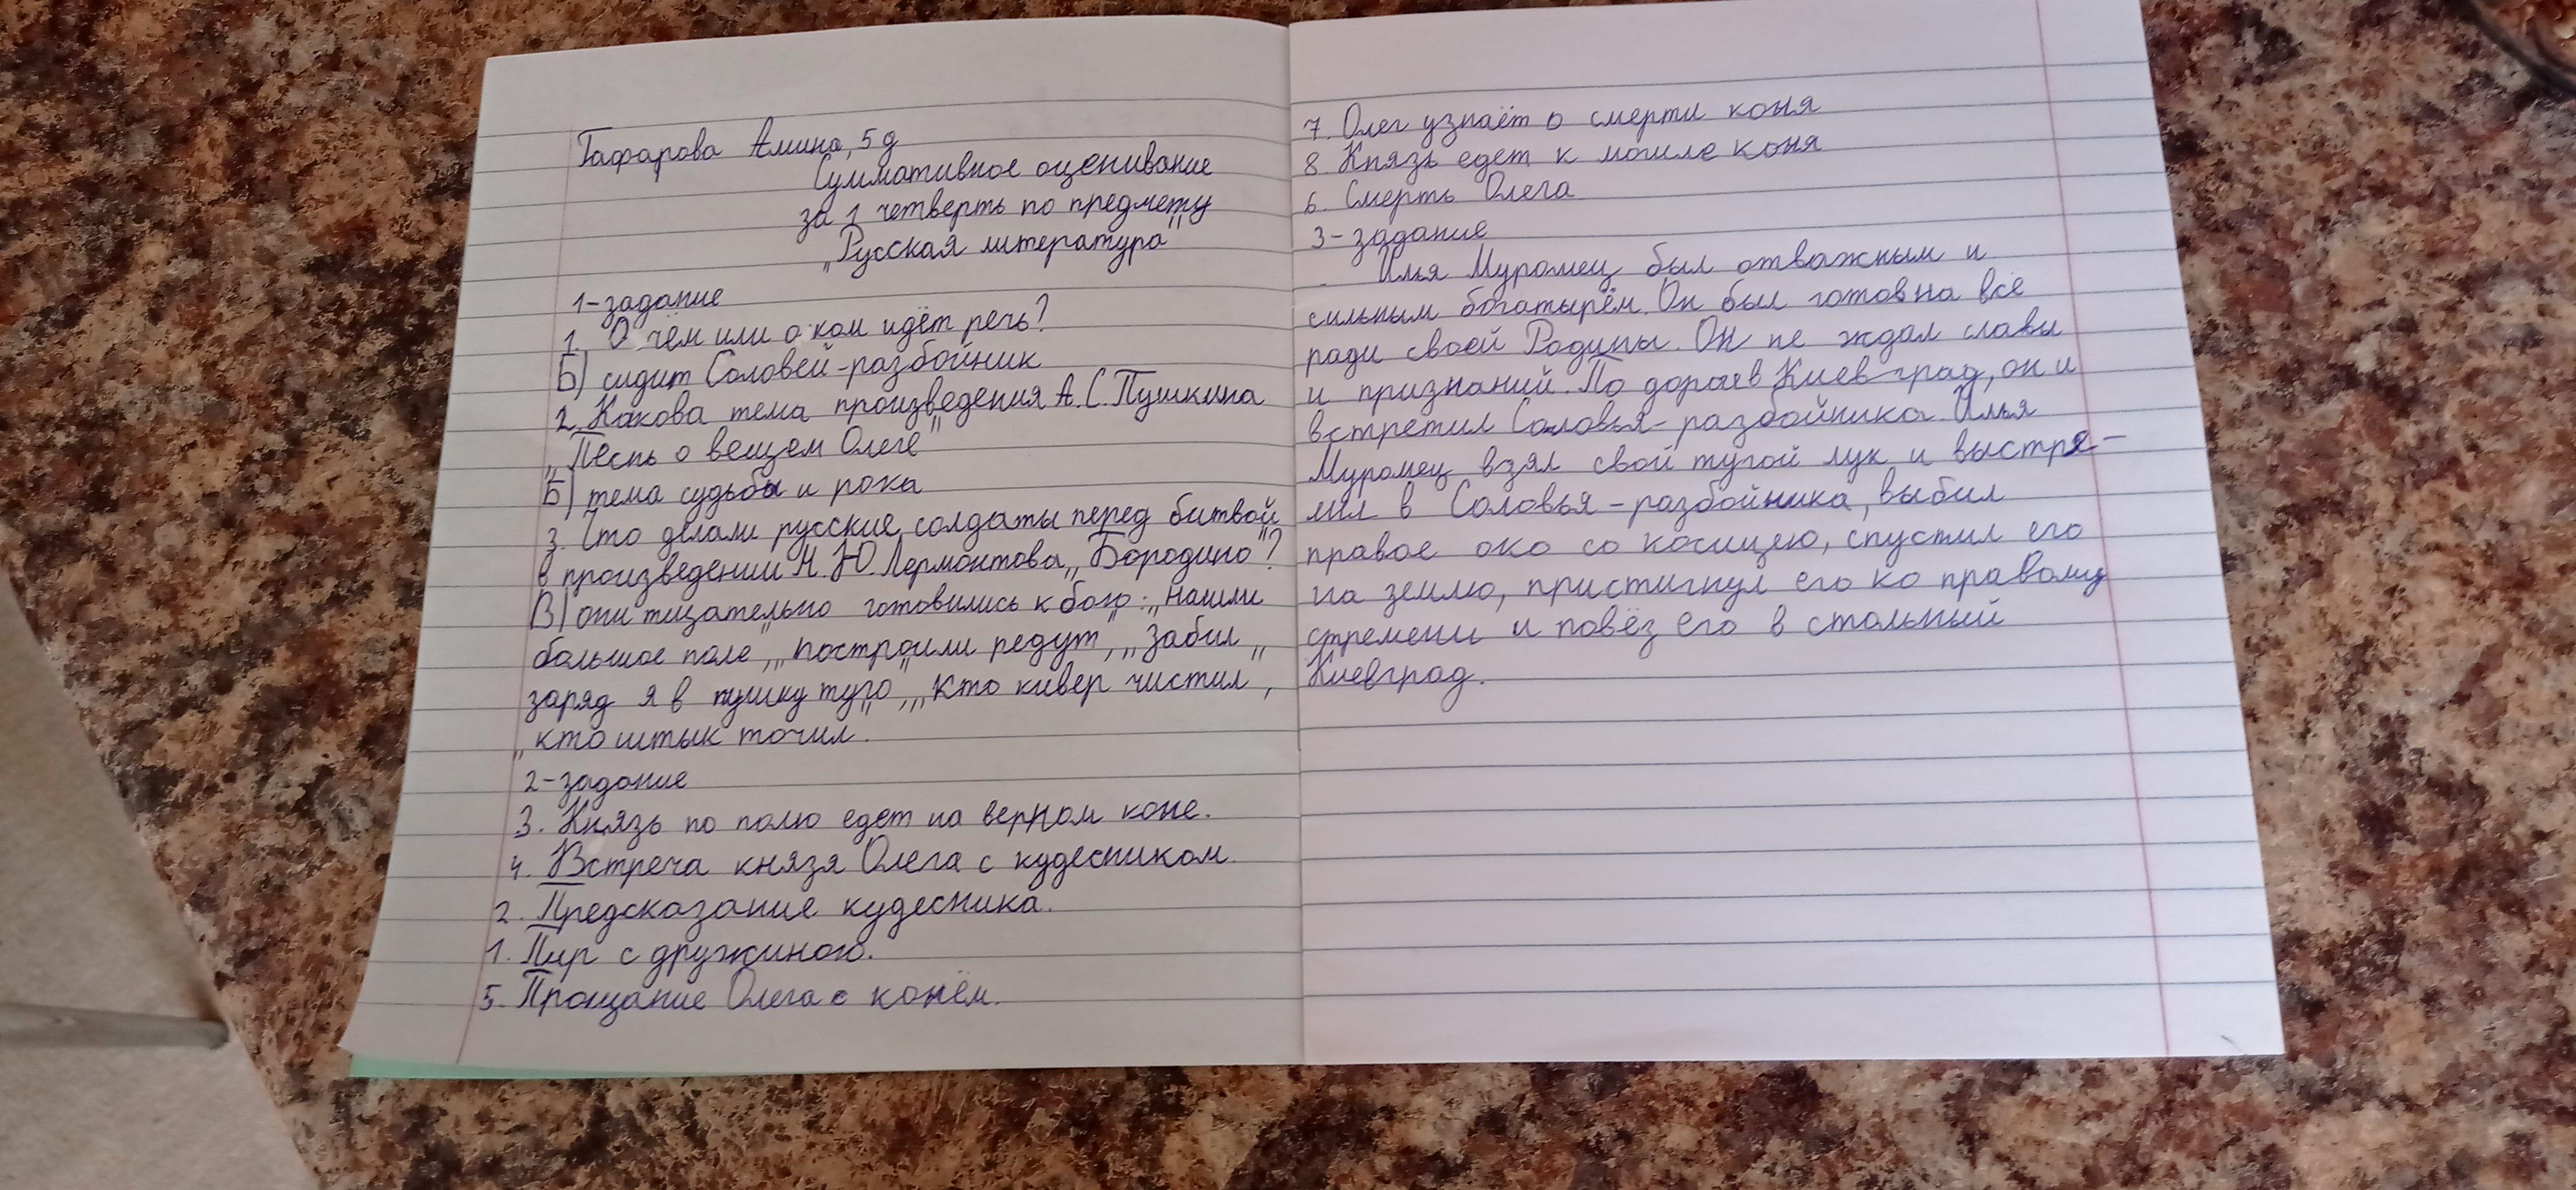 Гафарова Амина, 5 д
Суммативное оценивание
за 1 четверть по предмету
„Русская литература"
1-задание
1. О чём или о ком идёт речь?
Б) сидит Соловей-разбойник
2. Какова тема произведения А.С.Пушкина
„Песнь о вещем Олеге"
Б) тема судьбы и рока
3. Что делали русские солдаты перед битвой
в произведении М.Ю.Лермонтова „Бородино"?
В) они тщательно готовились к бою: „нашли
большое поле", „построили редут", „Забил „
заряд я в пушку туго", „кто кивер чистил,
„кто штык точил.
2-задание
3. Князь по полю едет на верном коне.
4. Встреча князя Олега с кудесником.
2. Предсказание кудесника.
1. Пир с дружиною.
5. Прощание Олега с конём.
7. Олег узнаёт о смерти коня
8. Князь едет к могиле коня
6. Смерть Олега
3-задание
Илья Муромец был отважным и
сильным богатырём. Он был готов на всё
ради своей Родины. Он не ждал славы
и признаний. По дороге в Киев град, он и
встретил Соловья-разбойника. Илья
Муромец взял свой тугой лук и выстре-
лил в Соловья-разбойника, выбил
правое око со косицею, спустил его
на землю, пристигнул его ко правому
стремени и повёз его в стольный
Киевград.